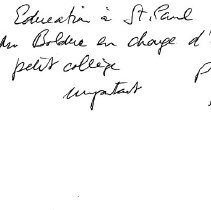 Education à St. Paul
Mr Bolduc en charge d'
petit collège
important